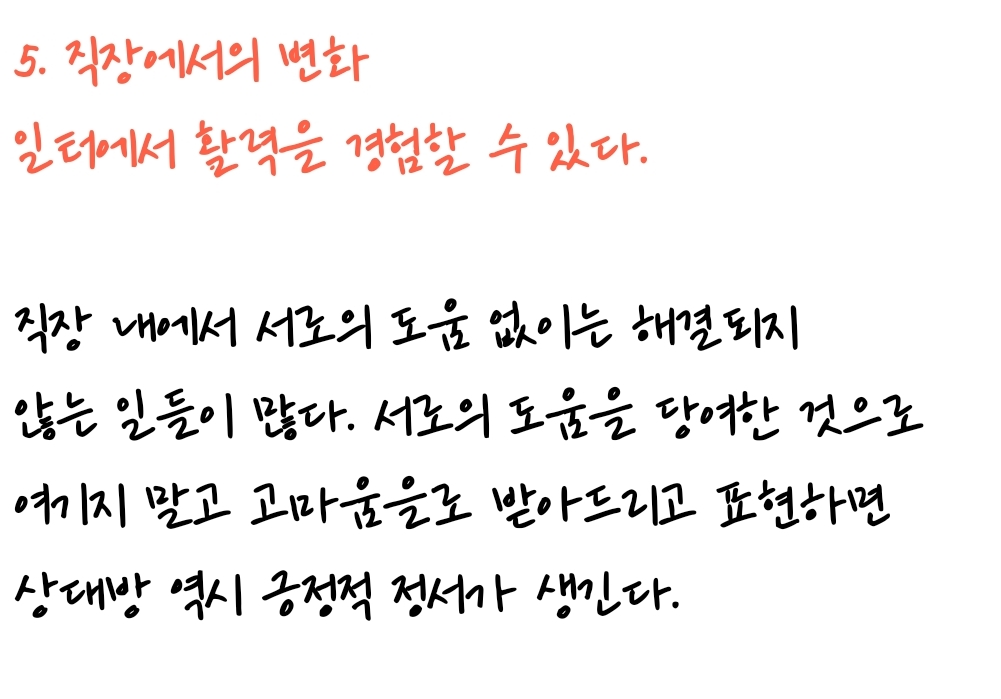 5. 직장에서의 변화
일터에서 활력을 경험할 수 있다.
직장 내에서 서로의 도움 없이는 해결되지
않는 일들이 많다. 서로의 도움을 당여한 것으로
여기지 말고 고마움을로 받아드리고 표현하면
상대방 역시 긍정적 정서가 생긴다.